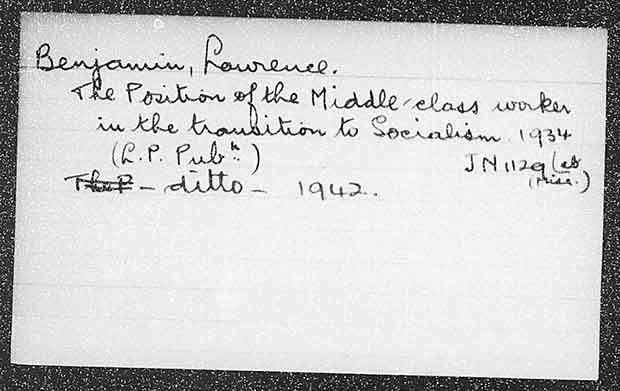 Benjamin, Lawrence.
The Position of the Middle-class worker
in the transition to Socialism. 1934
(L.P. Pubn.) JN1129 (L8
(Misc.)
The P - ditto - 1942.